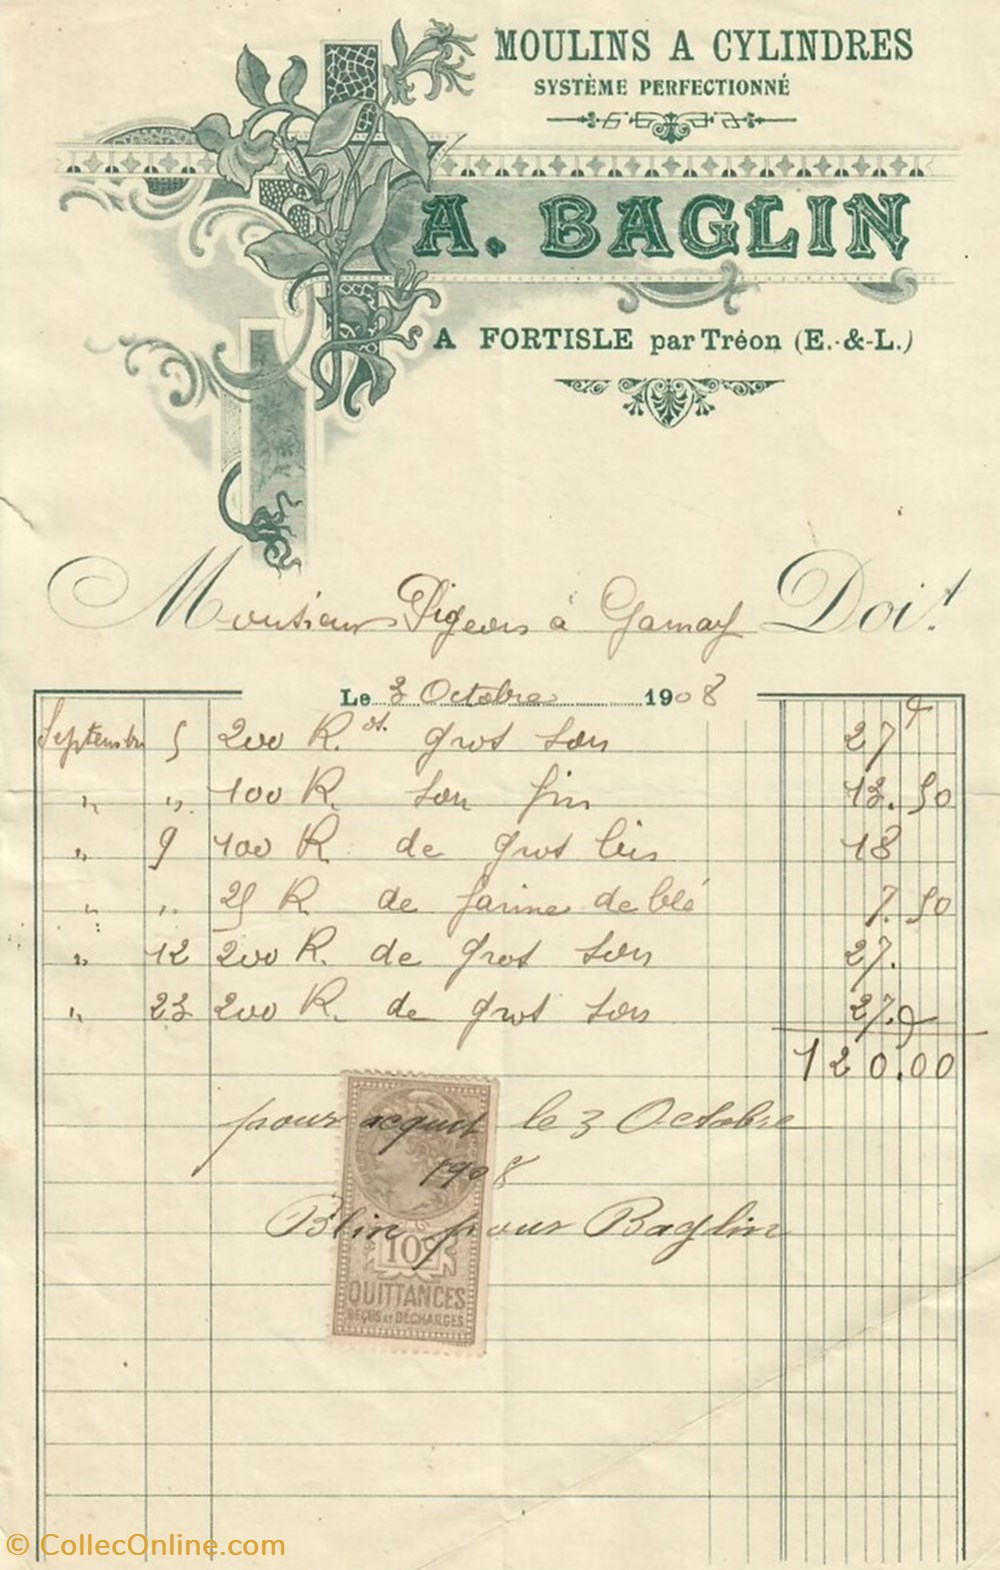 MOULINS A CYLINDRES
SYSTÈME PERFECTIONNÉ
A. BAGLIN
A FORTISLE par Tréon (E.-&-L.)
Monsieur Pigeon à Garnay Doit
Le 3 Octobre 1908
Septembre 5 200 K. os. gros son 27
" " 100 K. son fin 13.50
" 9 100 K. de gros bis 18
" " 25 K. de farine de blé 7.50
" 12 200 K. de gros son 27.
" 23 200 K. de gros son 27.
120.00
pour acquit le 3 Octobre
1908
Blin pour Baglin
10c
QUITTANCES
REÇUS ET DÉCHARGES
© CollecOnline.com